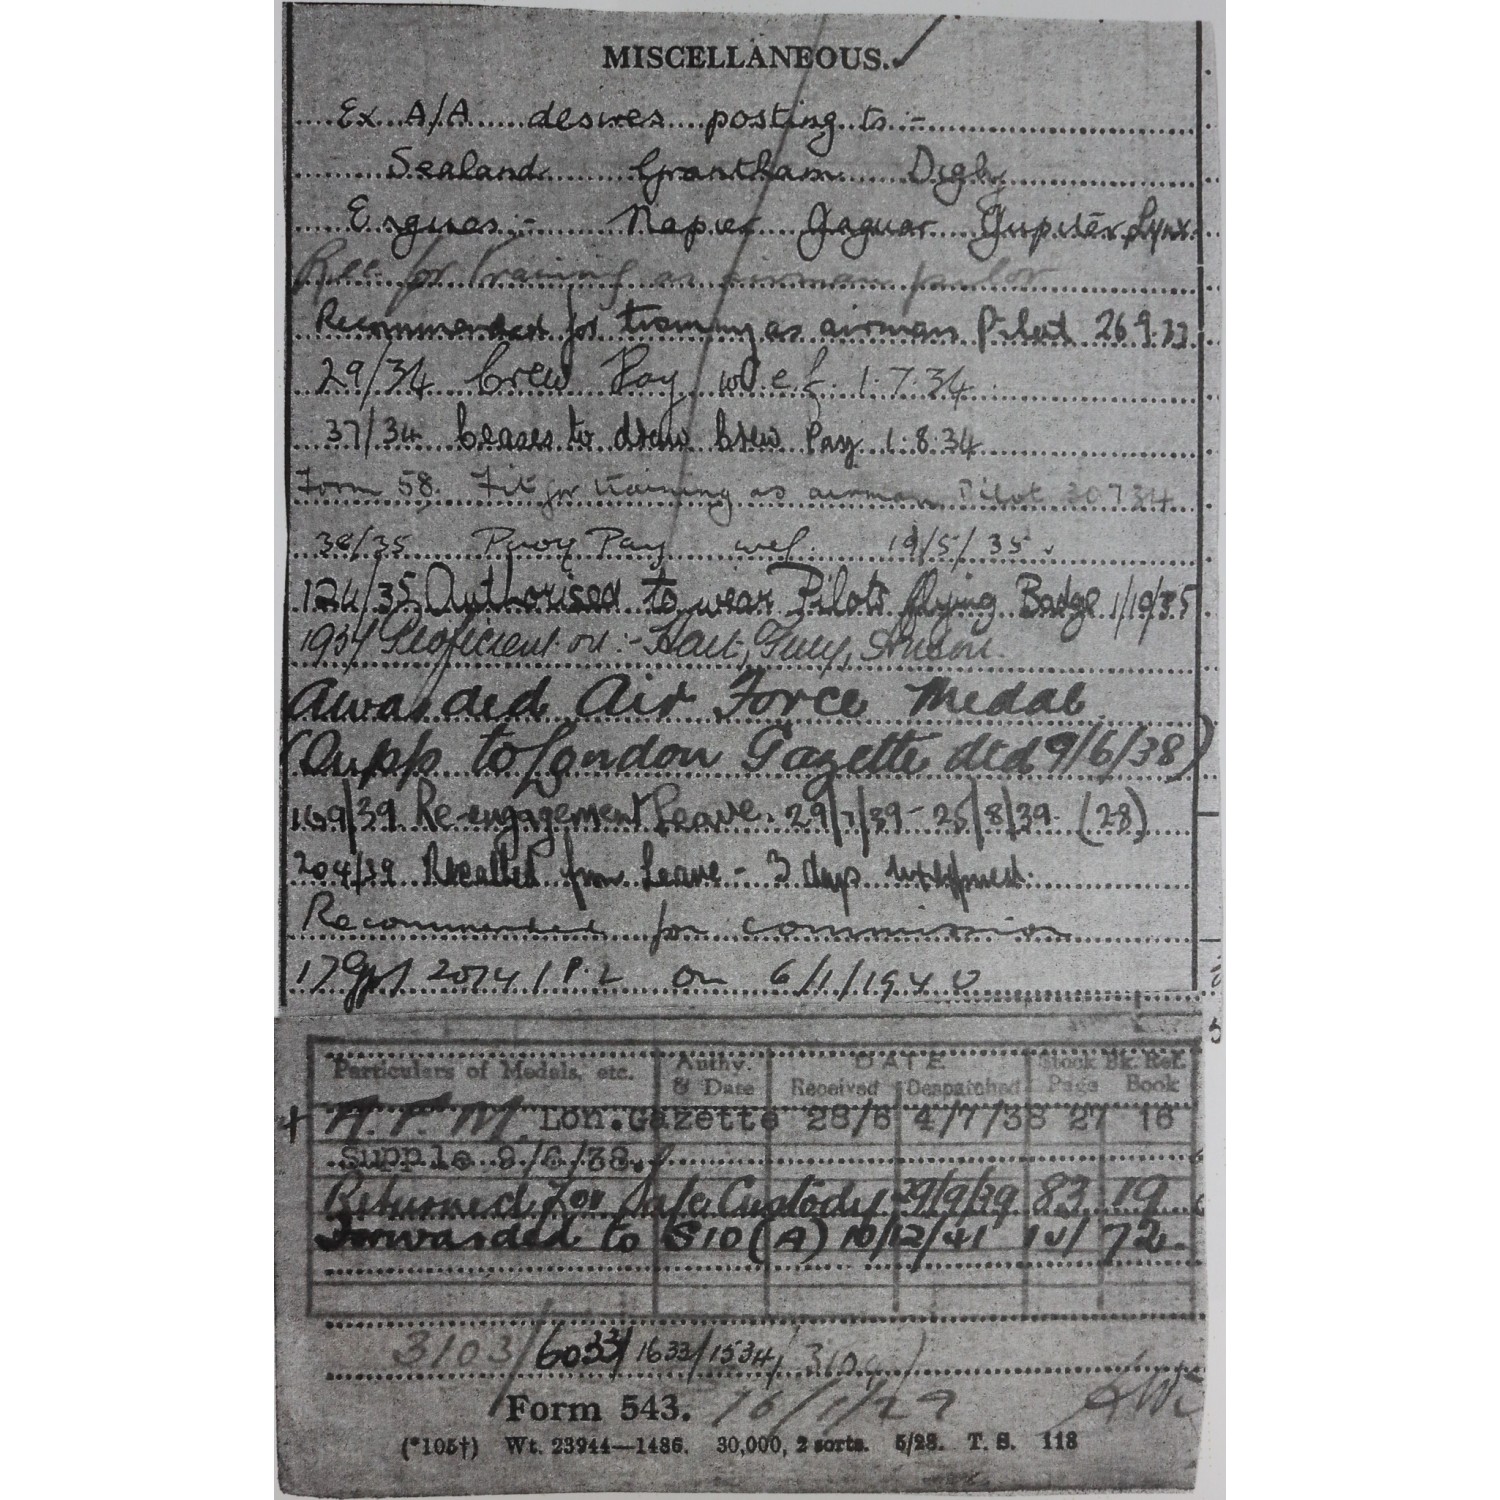 MISCELLANEOUS.
Ex A/A desires posting to :-
Sealand Grantham Digby
Engines :- Napier Jaguar Jupiter Lynx
Rec for training as airman
Recommended for training as airman Pilot 26.9.33
29/34 Crew Pay w.e.f. 1.7.34
37/34 Ceases to draw Crew Pay 1.8.34
Form 58. Fit for training as airman Pilot 30 7 34
38/35 Pay wef. 19/5/35.
124/35 Authorised to wear Pilots flying Badge 1/10/35
1937 Proficient on :- Hart, Tutor, Anson.
Awarded Air Force Medal
(Supp to London Gazette dtd 9/6/38)
169/39 Re-engagement Leave. 29/7/39 - 25/8/39. (28)
204/39 Recalled from Leave - 3 days
Recommended for commission
17 Gp/ 2074/P.2 on 6/1/1940
Particulars of Medals, etc. Authy. & Date DATE Received Despatched Stock Bk. Ref. Page Book
A.F.M. Lon.Gazette 28/6 4/7/38 27 16
Supple 9/6/38.
Returned for Safe Custody 29/9/39 83 19
Forwarded to S10(A) 10/12/41 72.
3103/6033/1633/1534/3104/
Form 543. 16/1/29
(*105†) Wt. 23944—1486. 30,000, 2 sorts. 5/28. T. S. 118